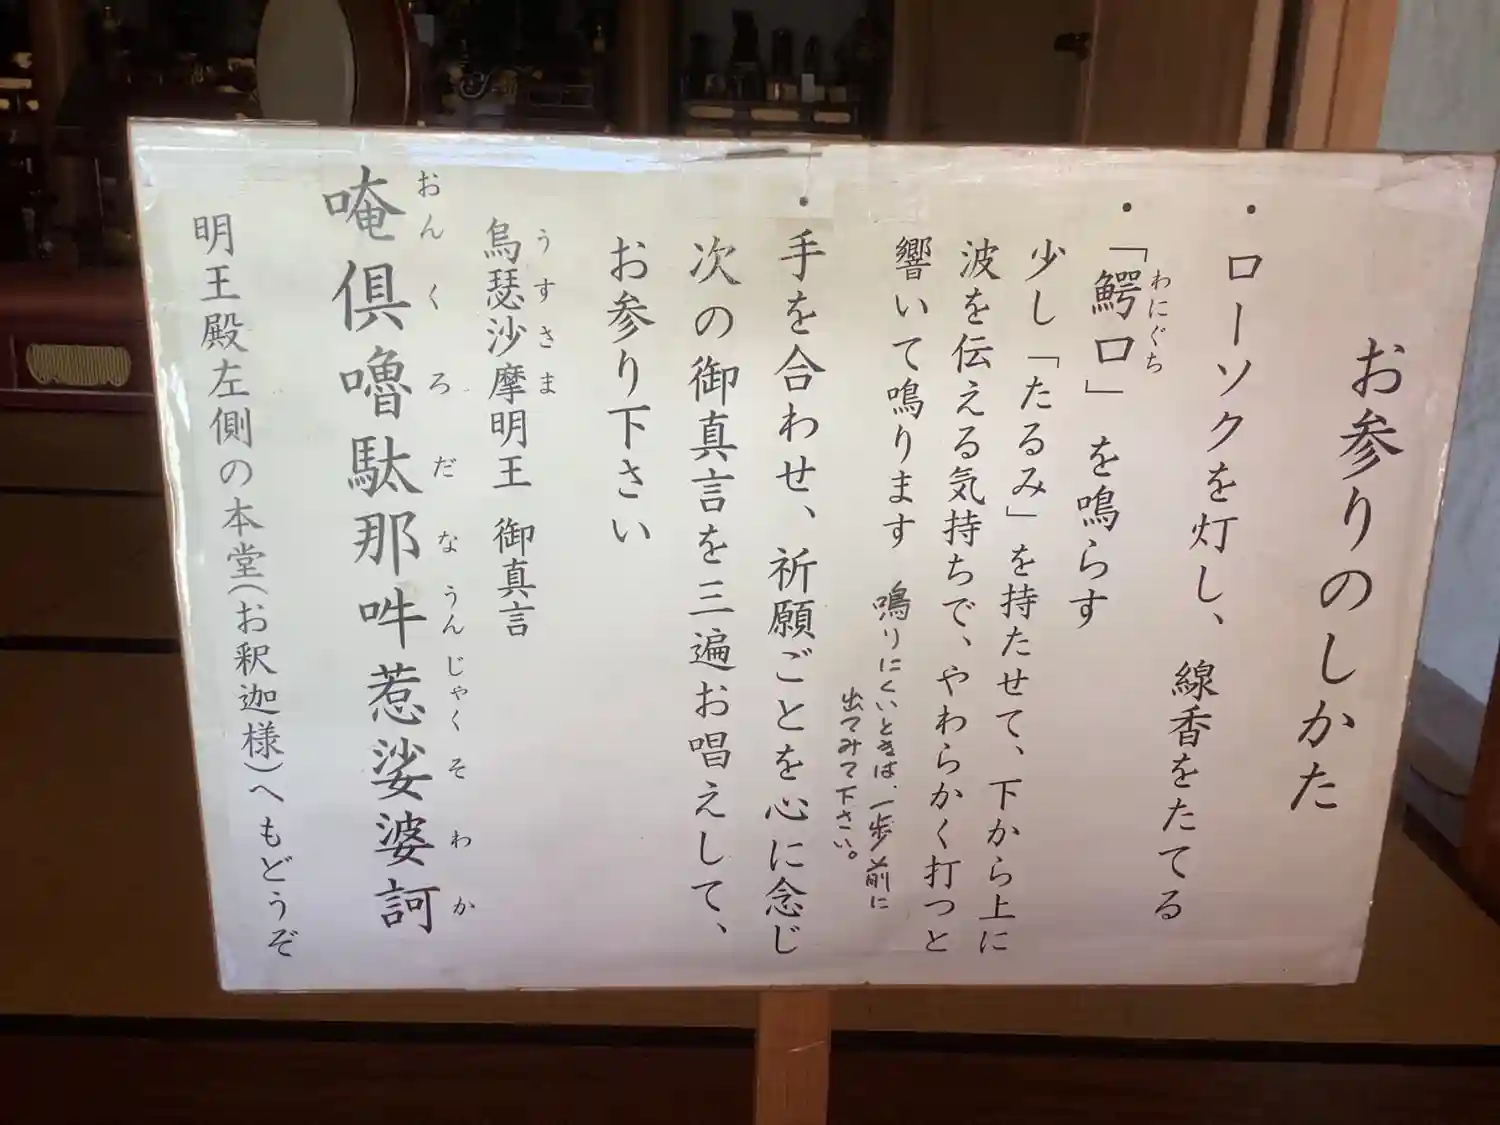 お参りのしかた
・ローソクを灯し、線香をたてる
・「鰐口」を鳴らす
わにぐち
少し「たるみ」を持たせて、下から上に
波を伝える気持ちで、やわらかく打つと
響いて鳴ります 鳴りにくいときは、一歩前に
出てみて下さい。
・手を合わせ、祈願ごとを心に念じ
次の御真言を三遍お唱えして、
お参り下さい
うすさま
烏瑟沙摩明王 御真言
おん く ろ だ な うん じゃく そ わ か
唵倶嚕駄那吽惹娑婆訶
明王殿左側の本堂(お釈迦様)へもどうぞ